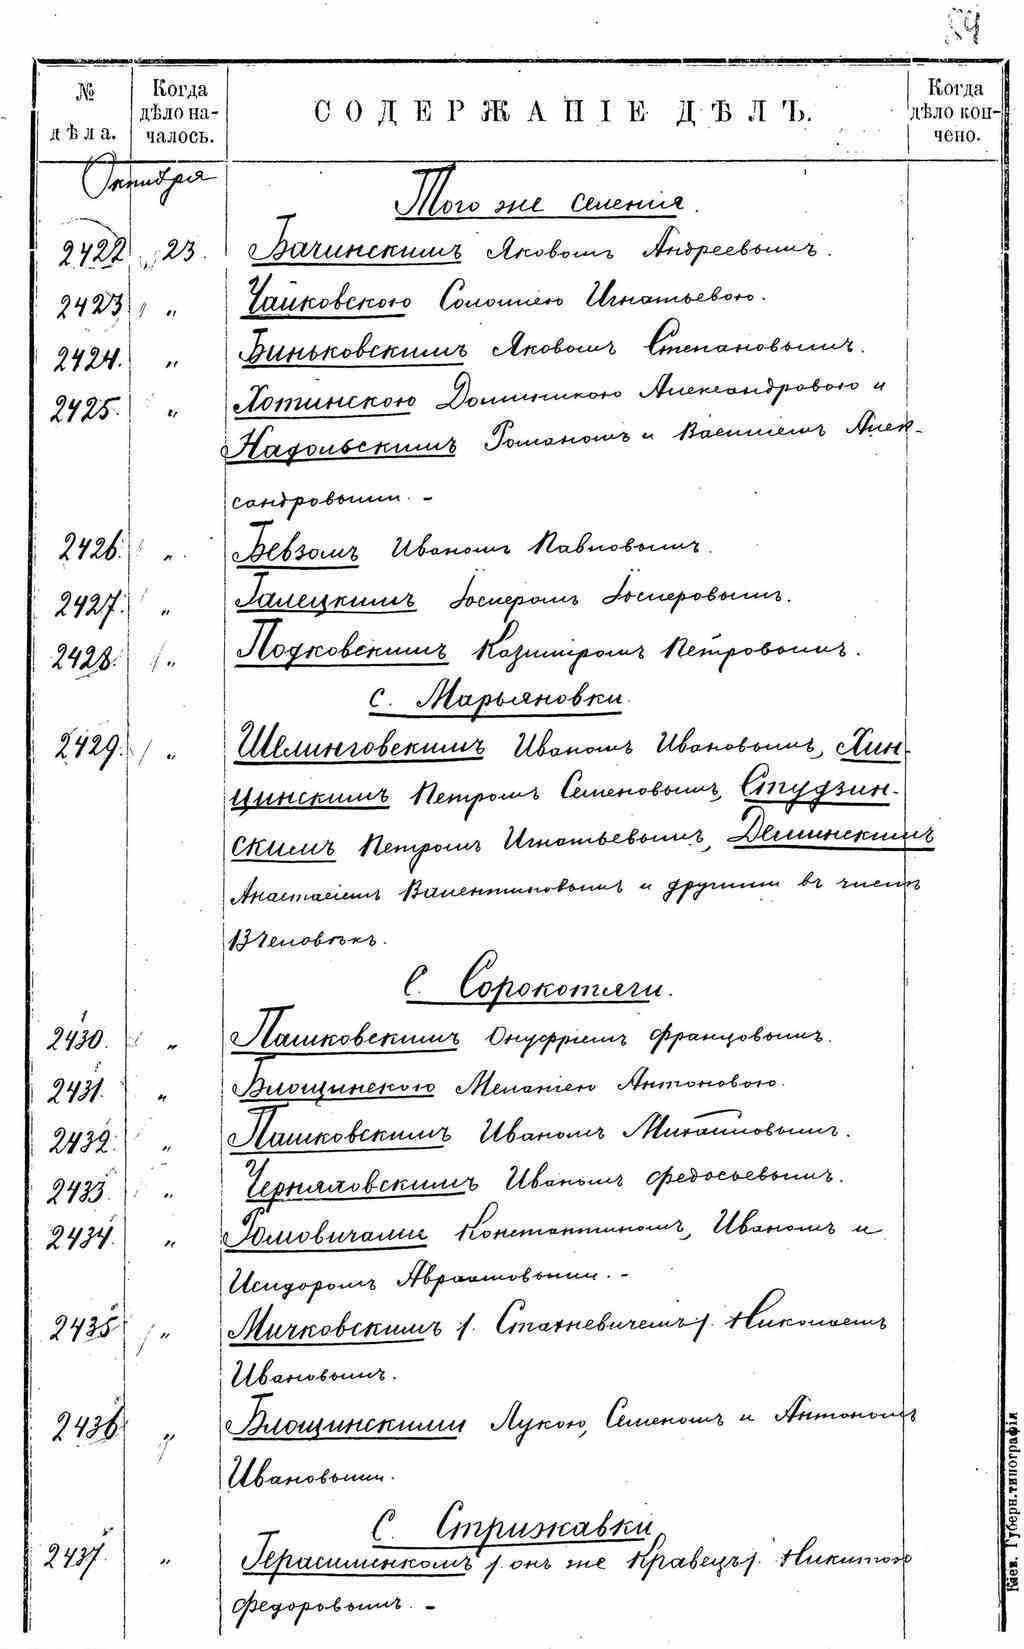 54
№ дѣла. Когда дѣло началось. СОДЕРЖАНІЕ ДѢЛЪ. Когда дѣло кончено.
Октября
Того же селенія.
2422 23. Бачинскимъ Яковомъ Андреевымъ.
2423 " Чайковскою Соломіею Игнатьевою.
2424. " Биньковскимъ Яковомъ Степановымъ.
2425. " Хотинскою Доминикою Александровою и
Надольскимъ Романомъ и Василіемъ Алек-
сандровыми. -
2426. " Бевзомъ Иваномъ Павловымъ.
2427. " Галецкимъ Іосиеромъ Іосиеровымъ.
2428. " Подковскимъ Казиміромъ Петровымъ.
с. Марьяновки.
2429. " Шелинговскимъ Иваномъ Ивановымъ, Хин-
цинскимъ Петромъ Семеновымъ, Студзин-
скимъ Петромъ Игнатьевымъ, Деминскимъ
Анастасіемъ Валентиновымъ и другими въ числѣ
13 человѣкъ.
С. Сорокотяги.
2430. " Пашковскимъ Онуфріемъ Францовымъ.
2431. " Блощинскою Меланіею Антоновою.
2432. " Пашковскимъ Иваномъ Михайловымъ.
2433. " Черняховскимъ Иваномъ Федосьевымъ.
2434. " Ромовичами Константиномъ, Иваномъ и
Исидоромъ Авраамовыми. -
2435 " Мичковскимъ /. Статкевичемъ /. Николаемъ
Ивановымъ.
2436 " Блощинскими Лукою, Семеномъ и Антономъ
Ивановыми.
С. Стрижавки
2437. " Герасименкомъ /. онъ же Кравецъ /. Никитою
Федоровымъ. -
Кіев. Губерн. типографія